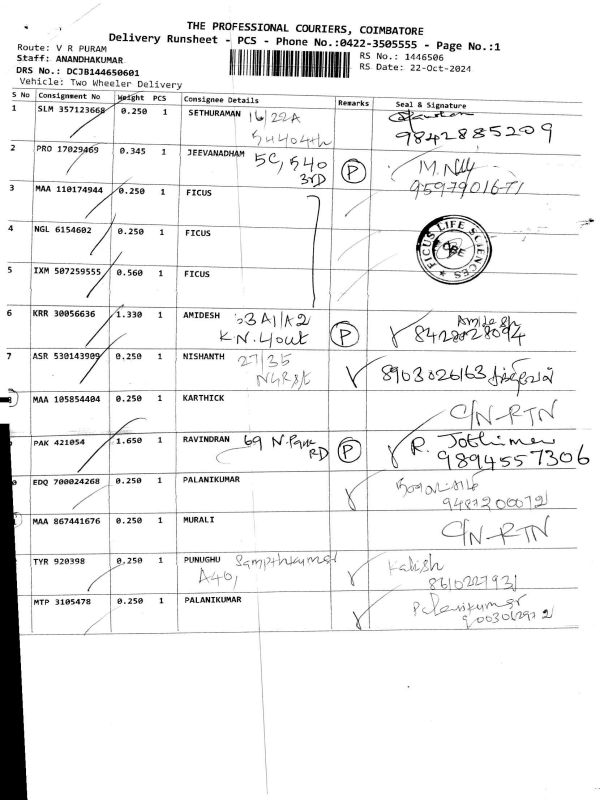 THE PROFESSIONAL COURIERS, COIMBATORE
Delivery Runsheet - PCS - Phone No.:0422-3505555 - Page No.:1
Route: V R PURAM
Staff: ANANDHAKUMAR
DRS No.: DCJB144650601
Vehicle: Two Wheeler Delivery
RS No.: 1446506
RS Date: 22-Oct-2024
S No Consignment No Weight PCS Consignee Details Remarks Seal & Signature
1 SLM 357123668 0.250 1 SETHURAMAN 16/22A
9842885209
2 PRO 17029469 0.345 1 JEEVANADHAM 5C, 540 P
3RD
3 MAA 110174944 0.250 1 FICUS
4 NGL 6154602 0.250 1 FICUS
FICUS LIFE SCIENCES
CBE
5 IXM 507259555 0.560 1 FICUS
6 KRR 30056636 1.330 1 AMIDESH 3A1/A2 P
K.N. Yout 8428028094
7 ASR 530143909 0.250 1 NISHANTH 27/35 8903026163
NGR St
MAA 105854404 0.250 1 KARTHICK C/N-RTN
PAK 421054 1.650 1 RAVINDRAN 69 P R. Jothimer
RD 9894557306
EDQ 700024268 0.250 1 PALANIKUMAR
9487200072
MAA 867441676 0.250 1 MURALI C/N-RTN
TYR 920398 0.250 1 PUNUGHU Sampthkumar Kalish
A46, 861022793
MTP 3105478 0.250 1 PALANIKUMAR Palanikumar